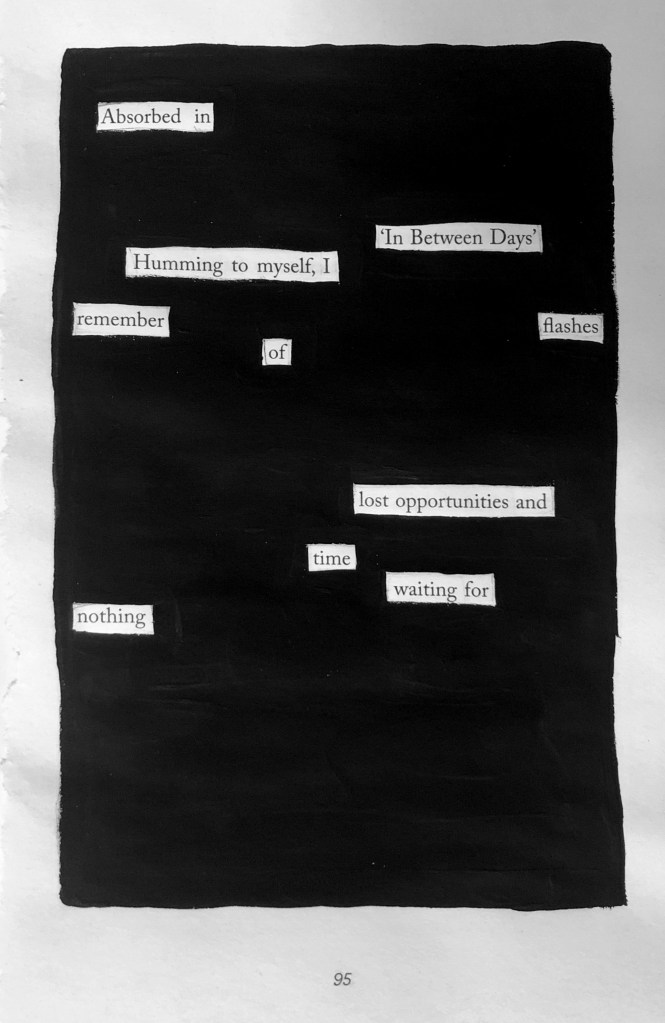 Absorbed in
'In Between Days'
Humming to myself, I
remember
flashes
of
lost opportunities and
time
waiting for
nothing
95